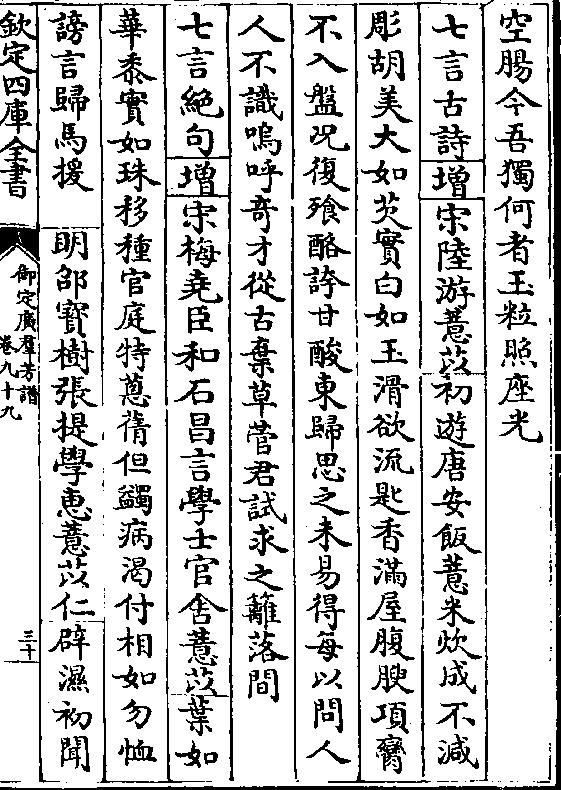 空腸今吾獨何者玉粒照座光
七言古詩增宋陸游薏苡初遊唐安飯薏米炊成不減
彫胡美大如芡實白如玉滑欲流匙香滿屋腹腴項臠
不入盤况復飱酪誇甘酸東歸思之未易得每以問人
人不識嗚呼奇才從古棄草菅君試求之籬落間
七言絶句增宋梅堯臣和石昌言學士官舍薏苡葉如
華黍實如珠移種官庭特葱蒨但蠲病渴付相如勿恤
謗言歸馬援　明邵寶樹張提學惠薏苡仁辟濕初聞
欽定四庫全書
御定廣羣芳譜
卷九十九
三十